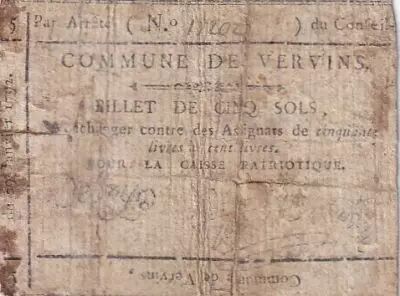 5 Par Arrêté ( N.o ) du Conseil
COMMUNE DE VERVINS.
BILLET DE CINQ SOLS,
échanger contre des Assignats de cinquante
livres à cent livres.
POUR LA CAISSE PATRIOTIQUE.
Commune de Vervins,